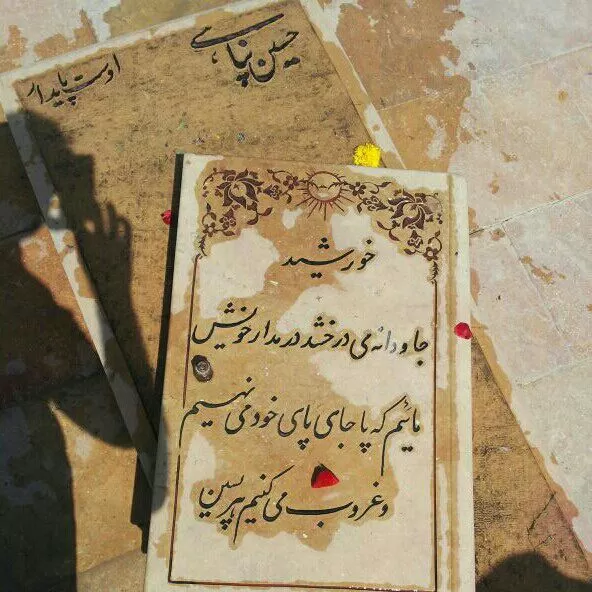 حسین پناهی
اوست پایدار
خورشید
جاودانه می درخشد در مدار خویش
مائیم که پا جای پای خود می نهیم
و غروب می کنیم هر پسین